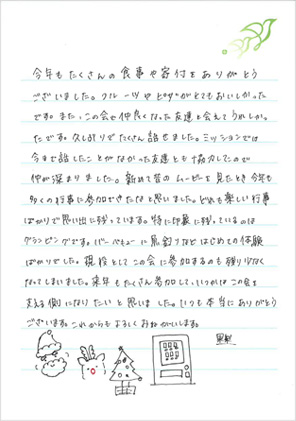 今年もたくさんの食事や寄付をありがとう
ございました。フルーツやピザがとてもおいしかった
です。また、この会で仲良くなった友達と会えてうれしかっ
たです。久しぶりでたくさん話せました。ミッションでは
今まで話したことがなかった友達とも協力したので
仲が深まりました。新めて昔のムービーを見たとき今年も
多くの行事に参加できたなと思いました。どれも楽しい行事
ばかりで思い出に残っています。特に印象に残っているのは
グランピングです。バーベキューに魚釣りなどはじめての体験
ばかりでした。現役としてこの会に参加するのも残り少なく
なってしまいました。来年もたくさん参加して、いつかはこの会を
支える側になりたいと思いました。いつも本当にありがとう
ございます。これからもよろしくおねがいします。